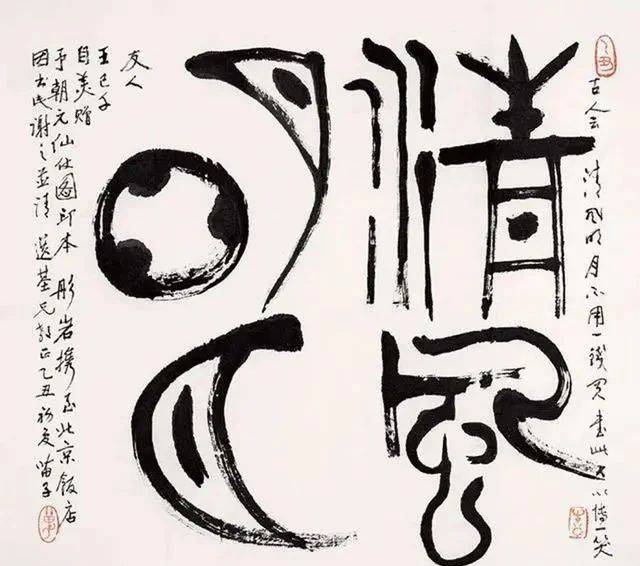 乙丑
古人云 清风明月不用一錢買 書此 以博一笑
清風
明月
友人
王己千
自美赠
予朝元仙仗圖印本 彤岩携至北京飯店
因書此謝之並請 選基兄教正 乙丑初夏 苗子
苗子